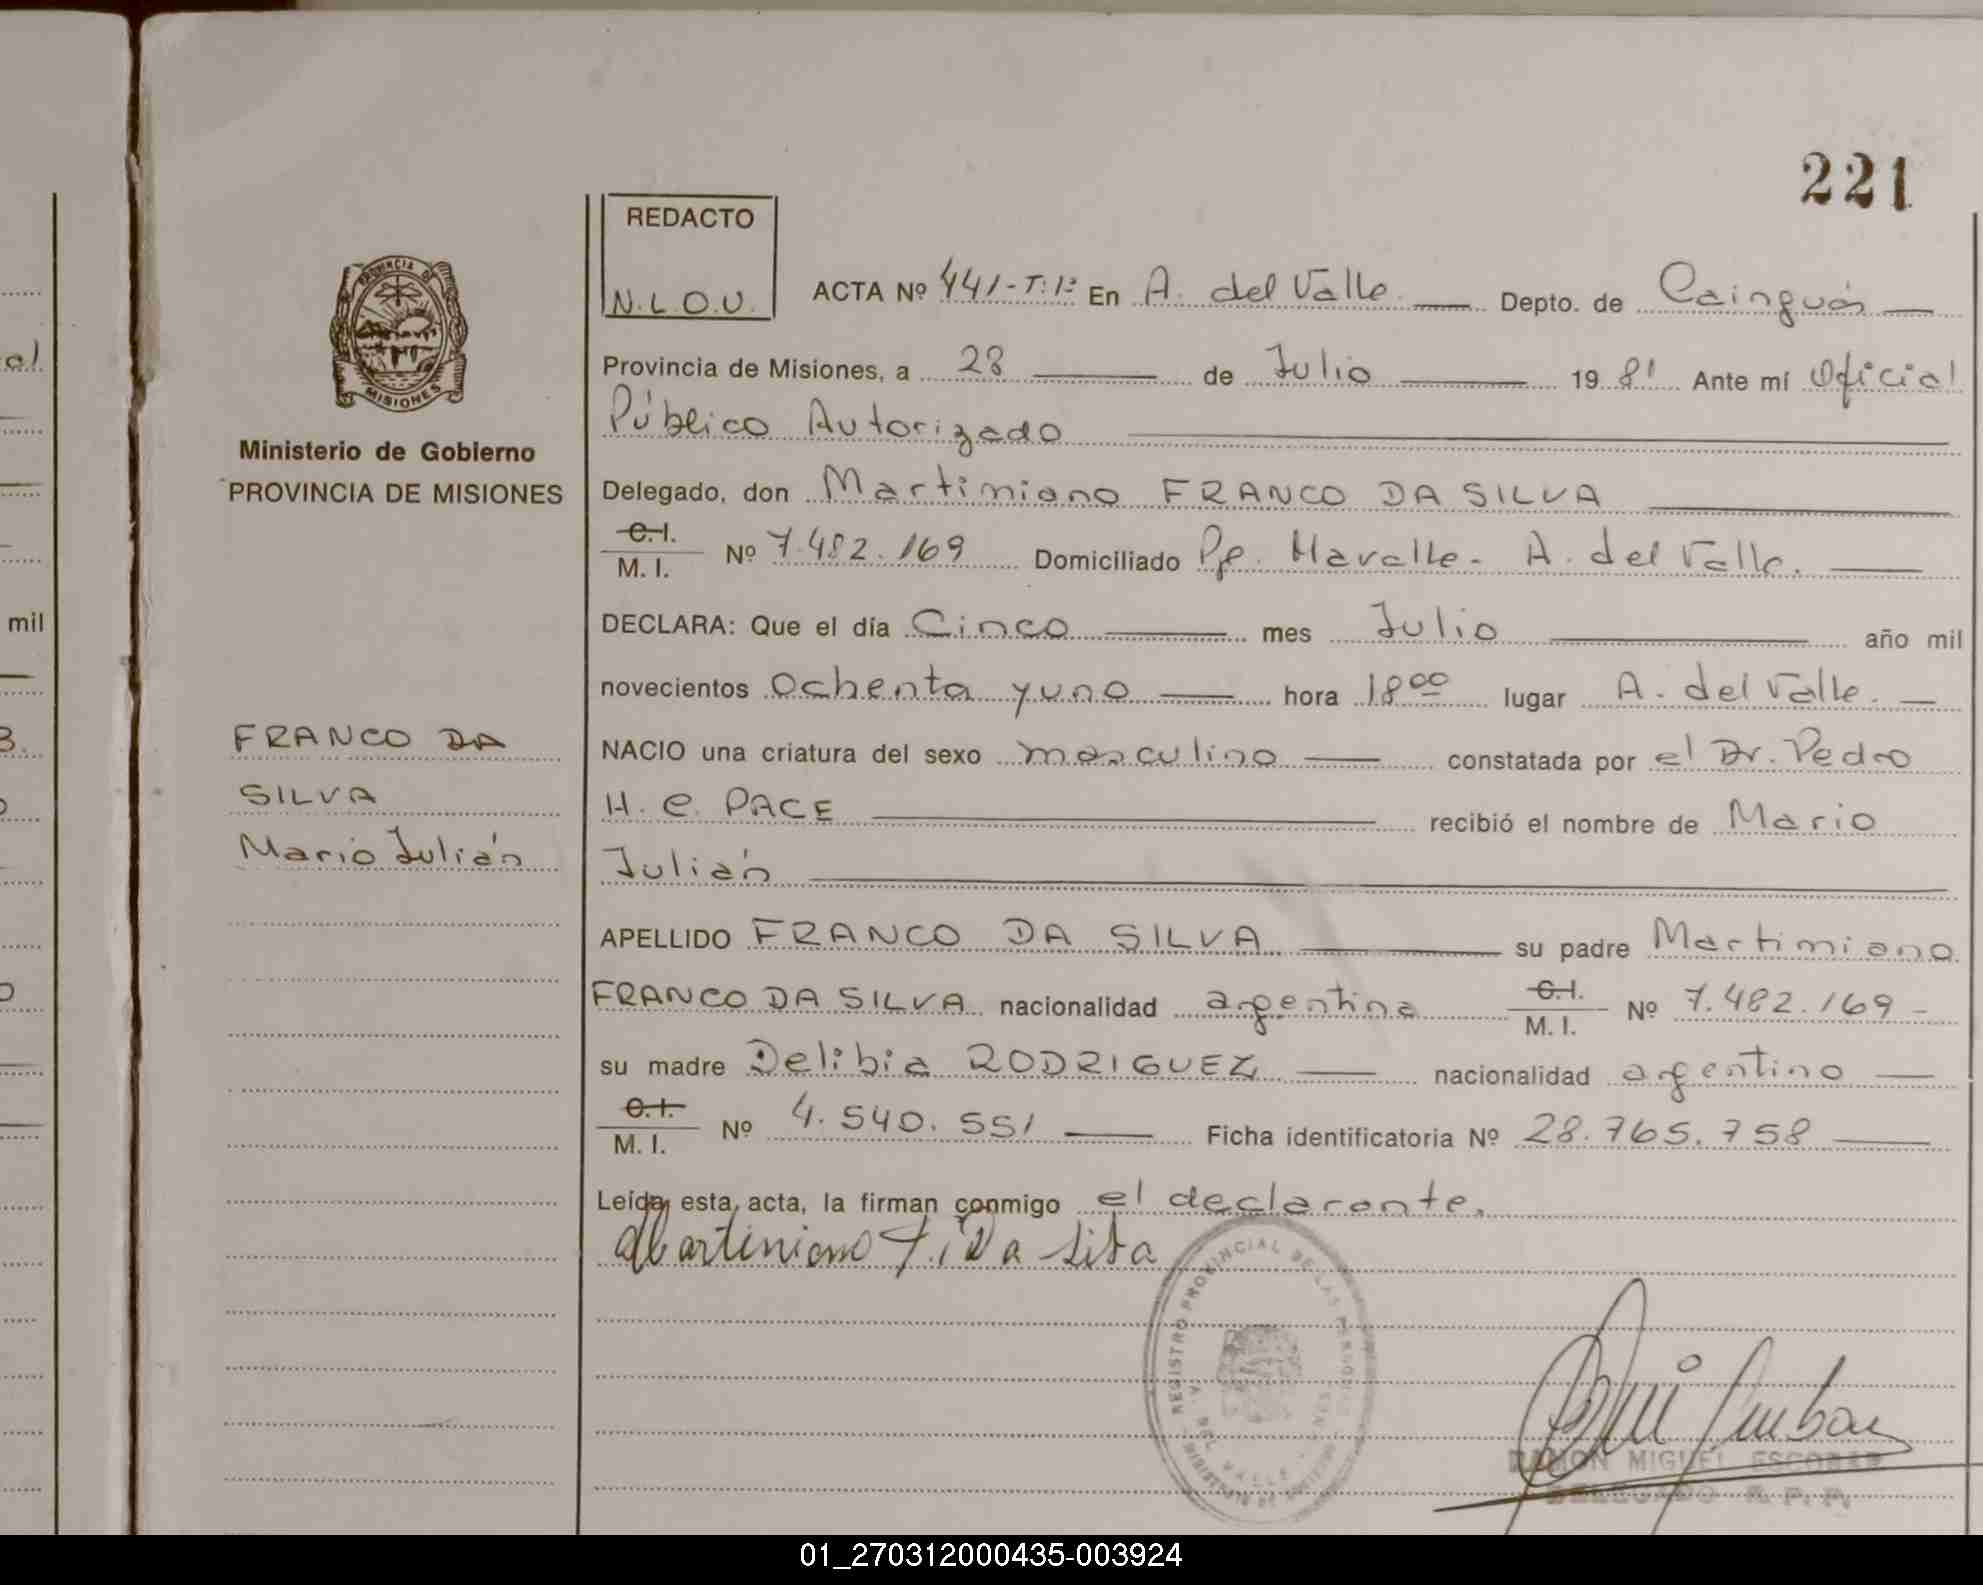 221
REDACTO
N.L.O.U.
PROVINCIA DE
MISIONES
Ministerio de Gobierno
PROVINCIA DE MISIONES
ACTA Nº 441-T:1º En A. del Valle. Depto. de Cainguás
Provincia de Misiones, a 28 de Julio 19 81 Ante mí Oficial
Público Autorizado
Delegado, don Martimiano FRANCO DA SILVA
C.I.
M. I. Nº 7.482.169 Domiciliado Pje. Mavalle- A. del Valle.
DECLARA: Que el día Cinco mes Julio año mil
novecientos Ochenta y uno hora 18 00 lugar A. del Valle.
NACIO una criatura del sexo masculino constatada por el Dr. Pedro
H. C. PACE recibió el nombre de Mario
Julián
APELLIDO FRANCO DA SILVA su padre Martimiano
FRANCO DA SILVA nacionalidad argentina C.I.
M. I. Nº 7.482.169-
su madre Delibia RODRIGUEZ nacionalidad argentino
C.I.
M. I. Nº 4.540.551 Ficha identificatoria Nº 28.765.758
Leída esta acta, la firman conmigo el declarante.
Martiniano F. Da Silva
FRANCO DA
SILVA
Mario Julián
REGISTRO PROVINCIAL DE LAS PERSONAS
A. DEL VALLE
RAMON MIGUEL ESCOBAR
DELEGADO R. P. P.
al
mil
01_270312000435-003924